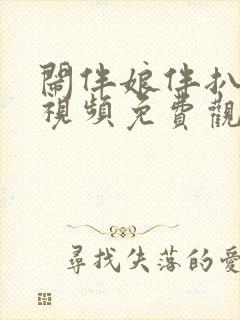 鬧伴娘伴扒
視頻免費觀
尋找失落的愛